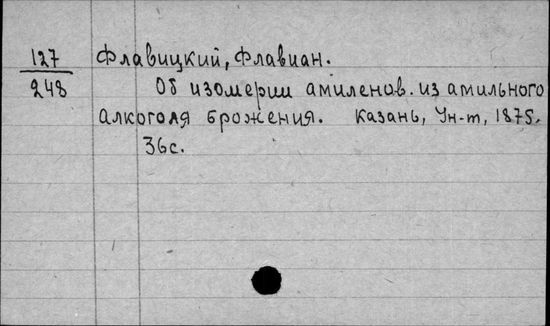 127 Флавицкий, Флавиан.
248 Об изомерии амиленов. из амильного
алкоголя брожения. Казань, Ун-т, 1875.
36с.